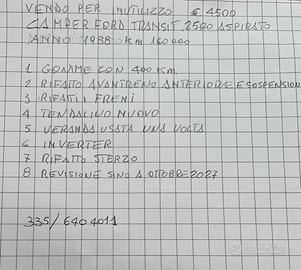 VENDO PER INUTILIZZO € 4500
CAMPER FORD TRANSIT 2500 ASPIRATO
ANNO 1988 km 160000
1 GOMME CON 400 Km.
2 RIFATTO AVANTRENO ANTERIORE E SOSPENSION
3 RIFATTI FRENI
4 TENDALINO NUOVO
5 VERANDA USATA UNA VOLTA
6 INVERTER
7 RIFATTO STERZO
8 REVISIONE SINO A OTTOBRE 2027
335/6404011
subito